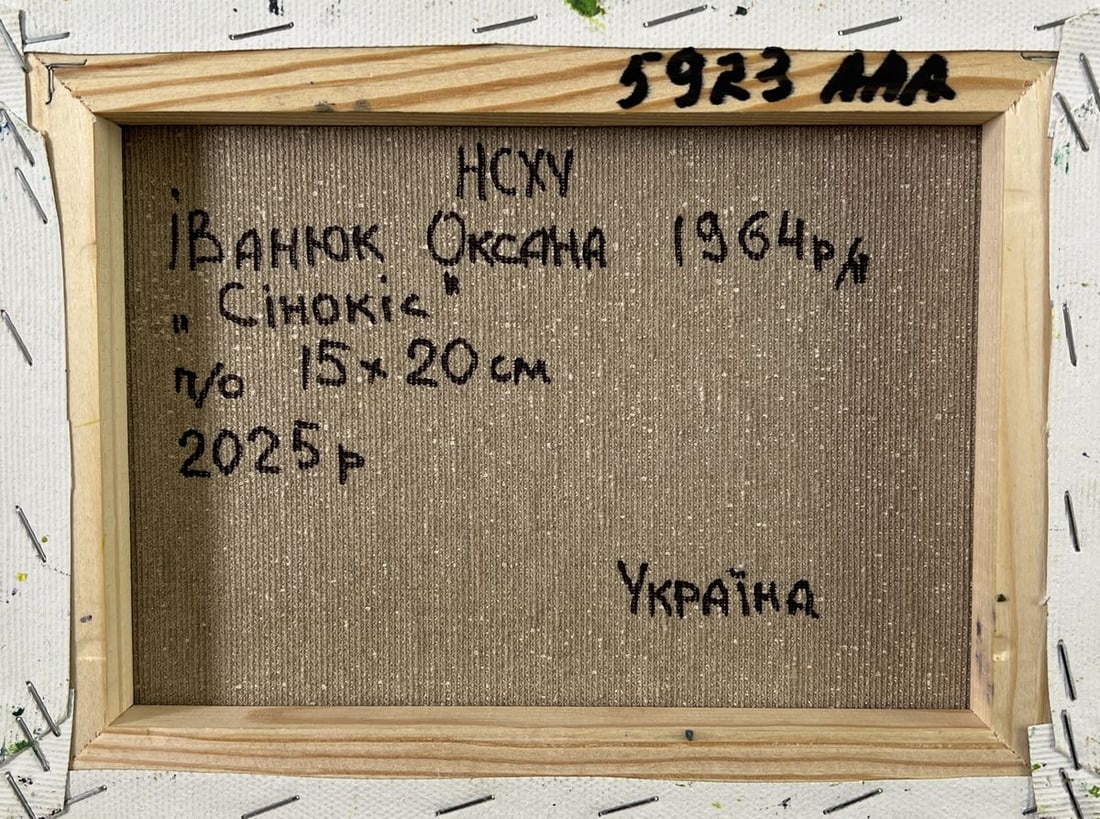 5923 AAA
НСХУ
Іванюк Оксана 1964р/н
„Сінокіс"
п/о 15 x 20 см
2025р
Україна